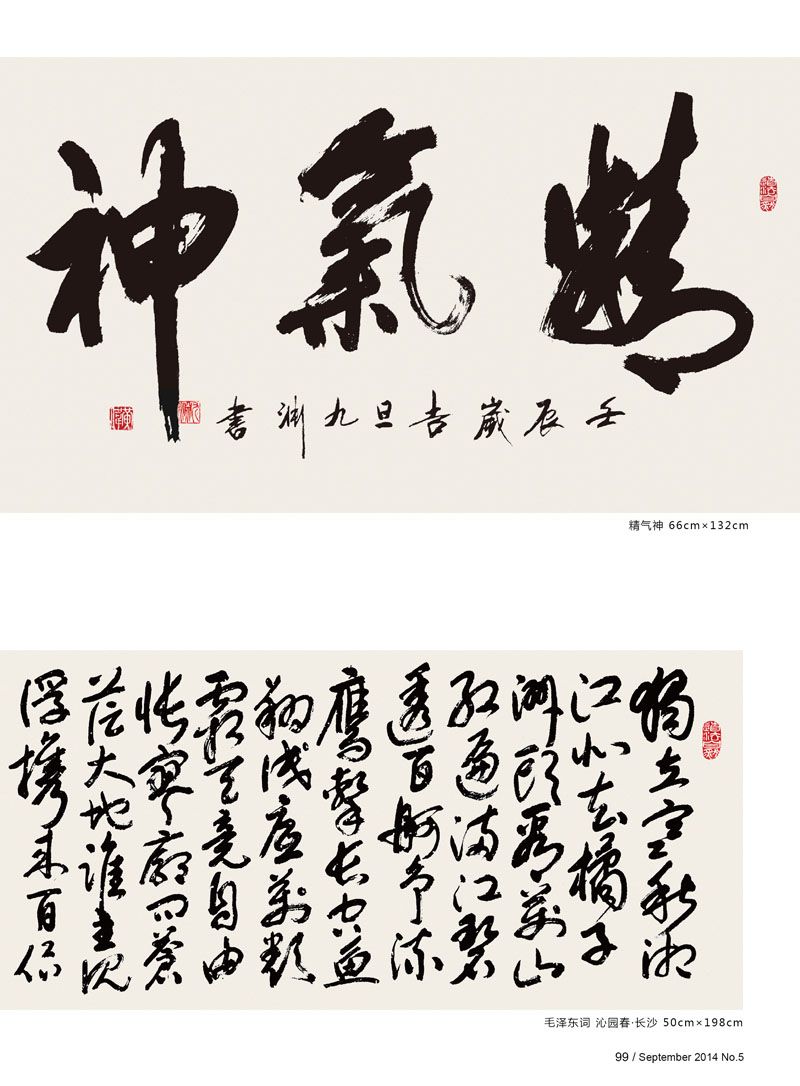 精氣神
壬辰歲吉旦九渊書
精气神 66cm×132cm
獨立寒秋湘
江北去橘子
洲頭看萬山
紅遍滿江碧
透百舸爭流
鷹擊長空魚
翔淺底萬類
霜天竞自由
悵寥廓问蒼
茫大地誰主沉
浮攜来百侣
毛泽东词 沁园春·长沙 50cm×198cm
99 / September 2014 No.5